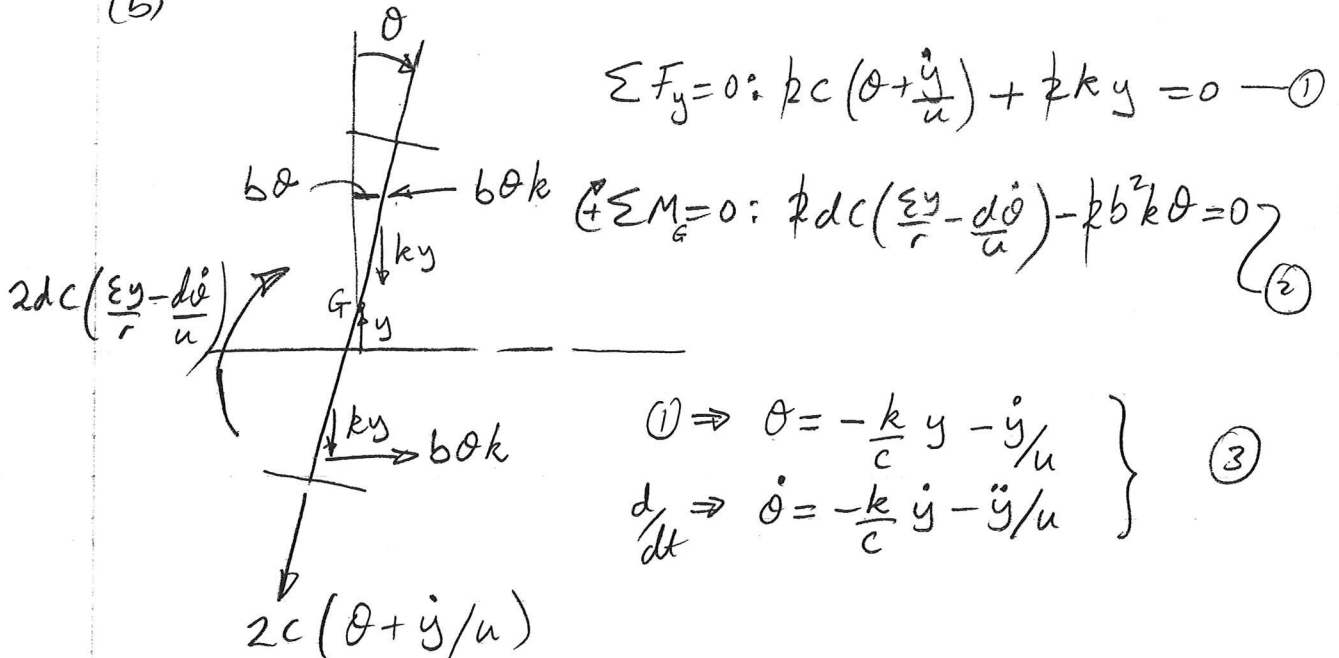 (b)
θ
ΣFy=0: 2c(θ+ẏ/u) + 2ky = 0 — ①
bθ
bθk
+ΣM_G=0: 2dc(εy/r - dθ̇/u) - 2b²kθ = 0
②
ky
2dc(εy/r - dθ̇/u)
G
y
ky
bθk
① ⇒ θ = -k/c y - ẏ/u
③
d/dt ⇒ θ̇ = -k/c ẏ - ÿ/u
2c(θ+ẏ/u)